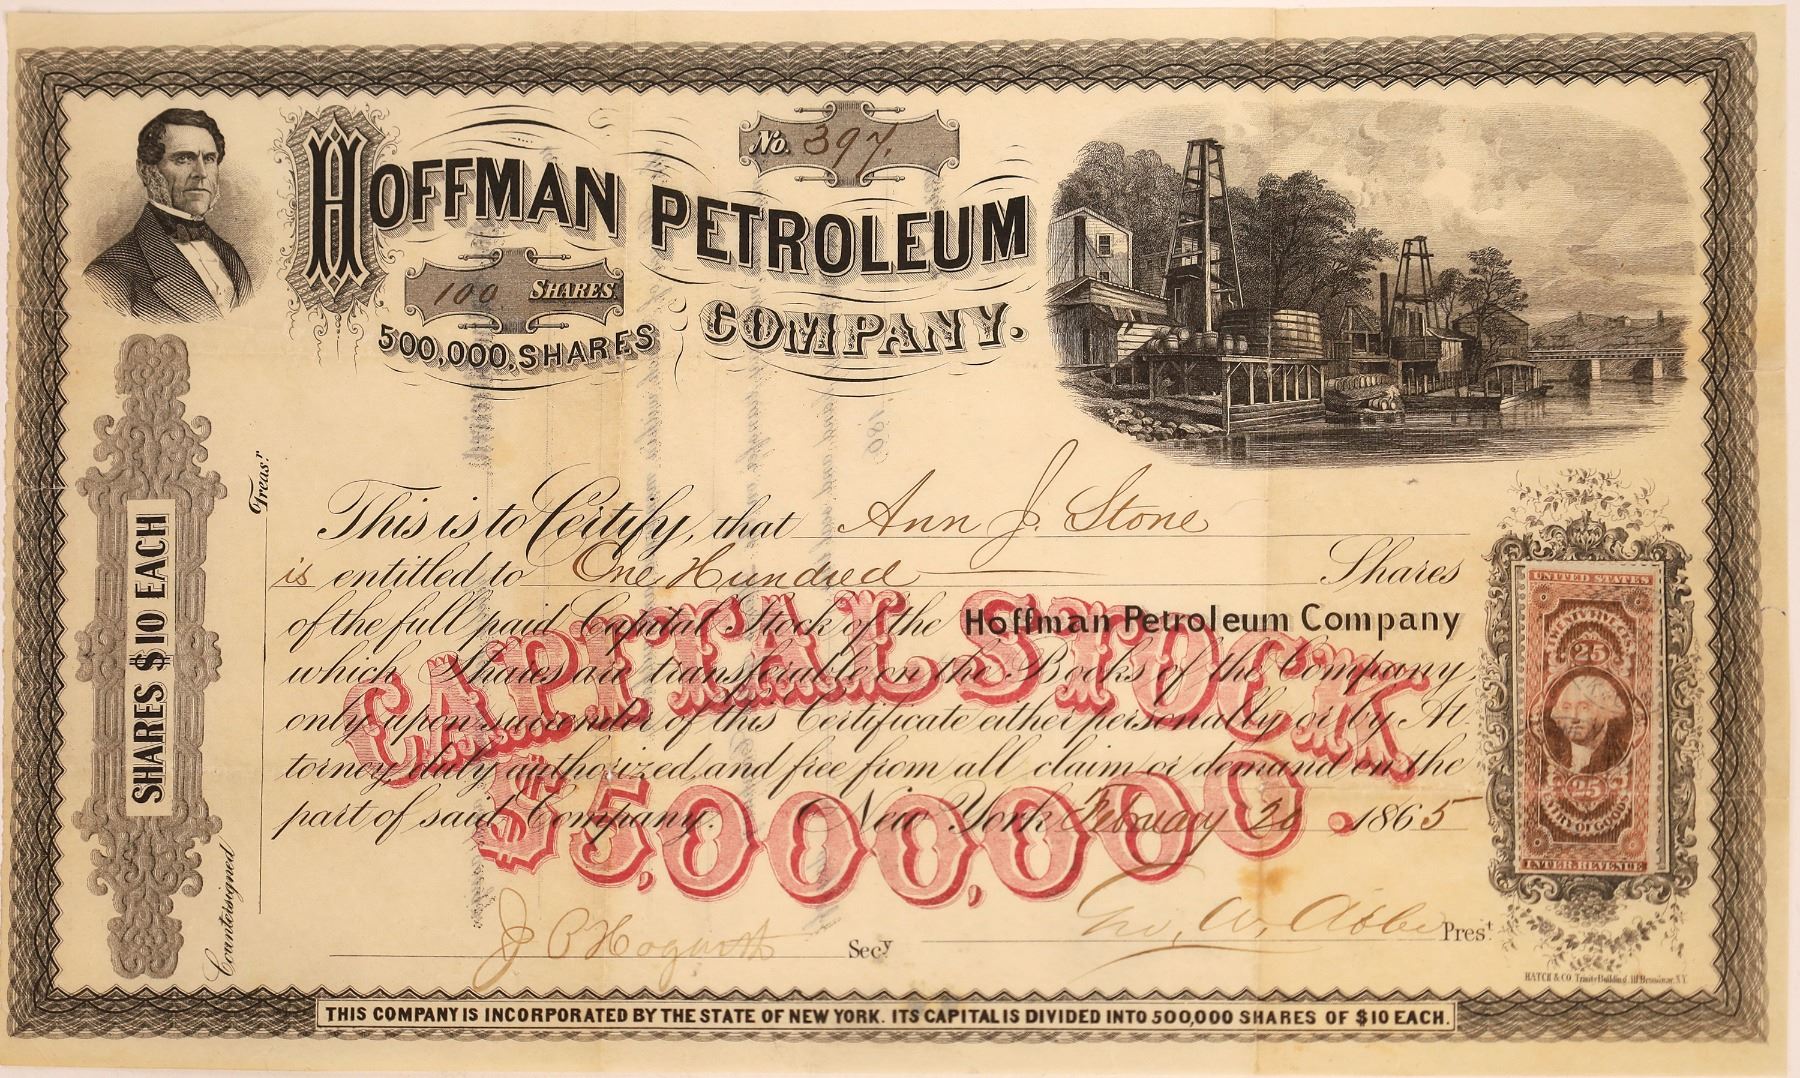 No. 397.
HOFFMAN PETROLEUM
COMPANY.
100 SHARES
500,000, SHARES
SHARES $10 EACH
Countersigned
Treas.r
This is to Certify, that Ann J. Stone
is entitled to One Hundred Shares
of the full paid Capital Stock of the Hoffman Petroleum Company
which Shares are transferable on the Books of the Company,
only upon surrender of this Certificate either personally or by At
torney duly authorized, and free from all claim or demand on the
part of said Company. New York February 20 1865
CAPITAL STOCK
$5,000,000
J P Hogarth Secy
Geo. W. Abbe Prest
UNITED STATES
TWENTY FIVE CTS.
25
25
ENTRY OF GOODS
INTER. REVENUE
HATCH & CO. Trinity Building, 111 Broadway, N.Y.
THIS COMPANY IS INCORPORATED BY THE STATE OF NEW YORK. ITS CAPITAL IS DIVIDED INTO 500,000 SHARES OF $10 EACH.